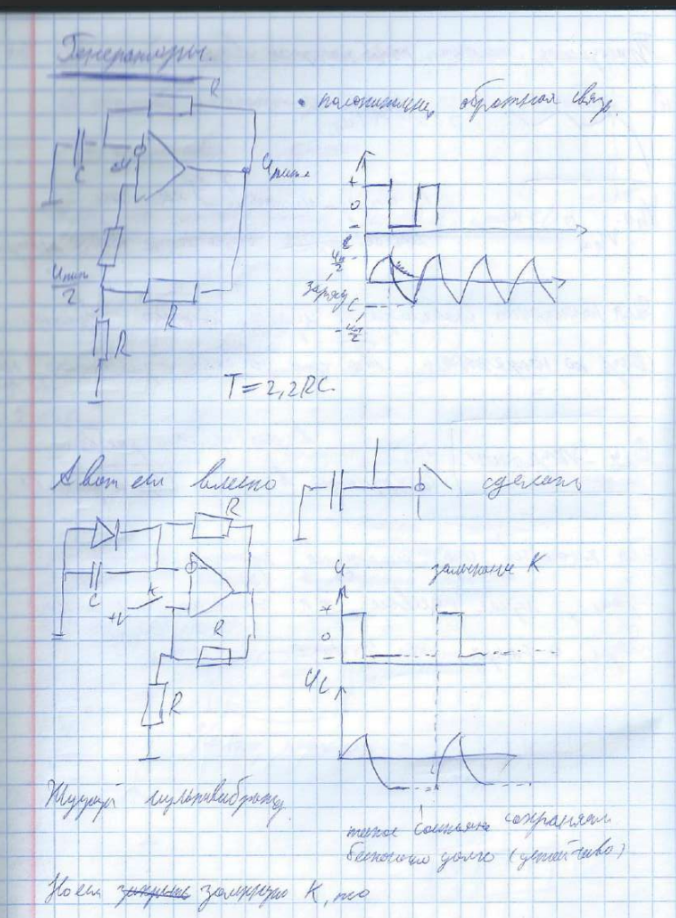 Генераторы.
R
• положительн. обратная связь
C
Uпит
+
0
-
Uп/2
Uпит/2
заряд
C
R
-Uп/2
R
T = 2,2RC.
А вот если вместо
сделать
R
C
K
+V
R
R
U
замыкание K
+
0
-
Uc
Ждущий мультивибратор
такое состояние сохраняем
бесконечно долго (устойчиво)
Но если замкнуто K, то